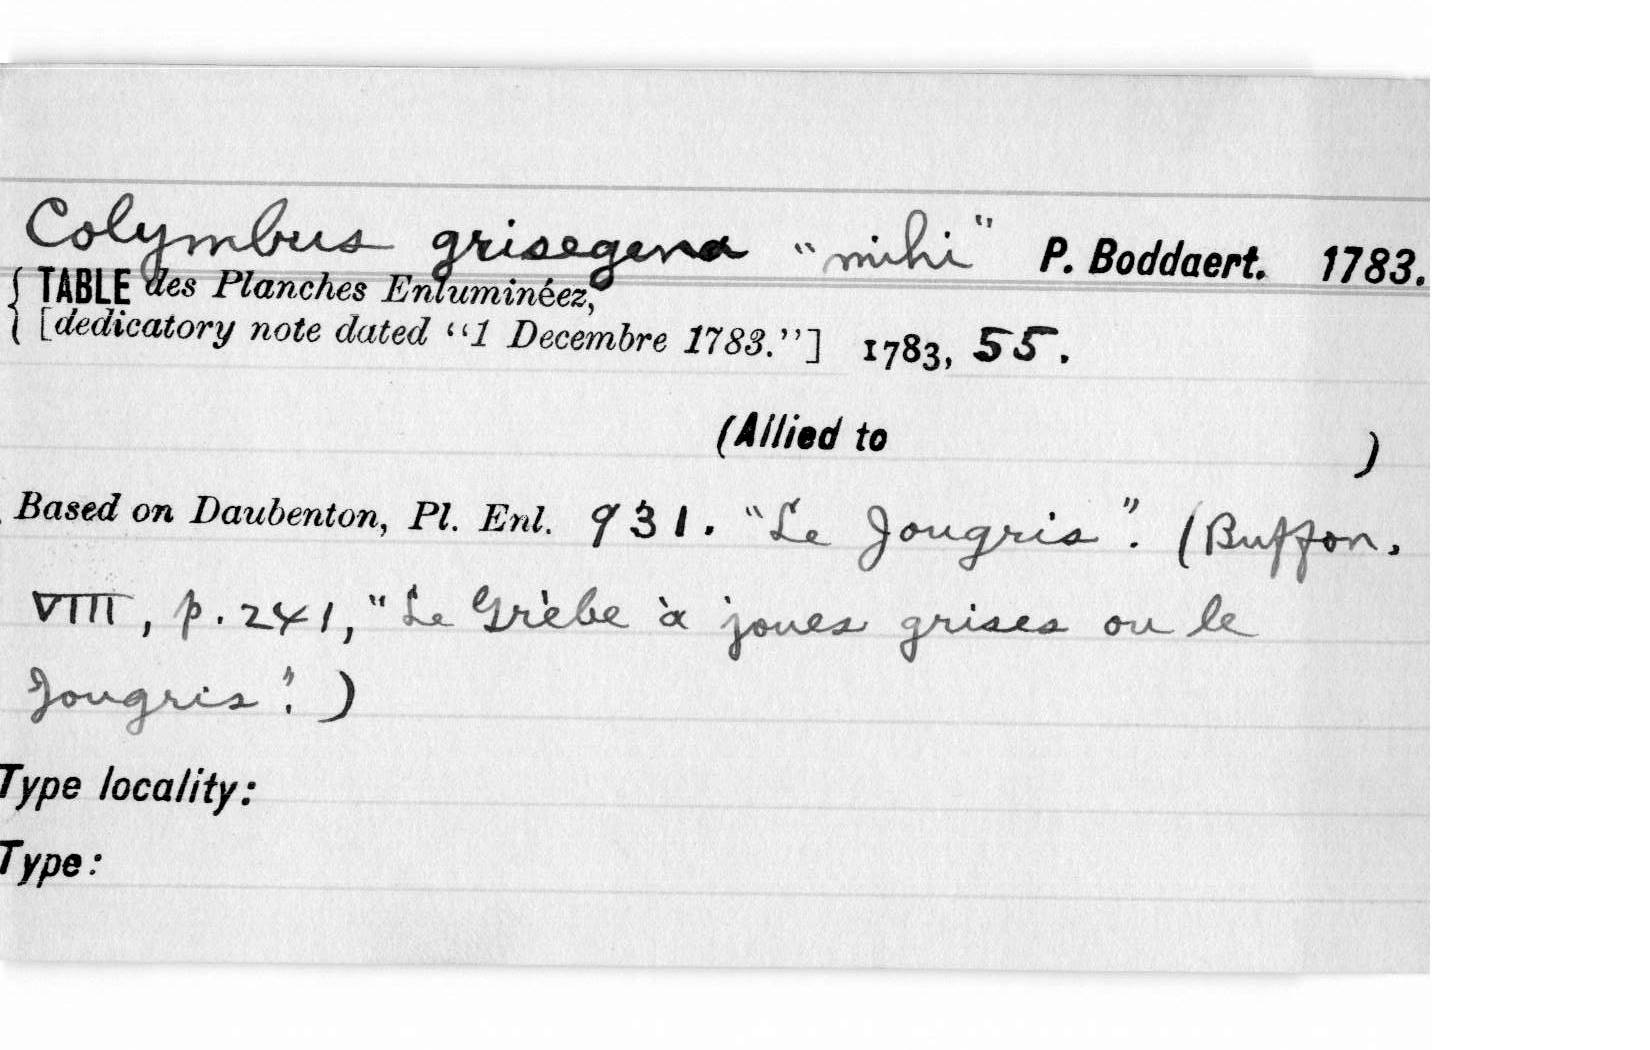 Colymbus grisegena "mihi" P. Boddaert. 1783.
{ TABLE des Planches Enluminéez,
{ [dedicatory note dated "1 Decembre 1783."] 1783, 55.
(Allied to )
Based on Daubenton, Pl. Enl. 931. "Le Jougris". (Buffon.
VIII, p. 241, "Le Grèbe à joues grises ou le
Jougris". )
Type locality:
Type: